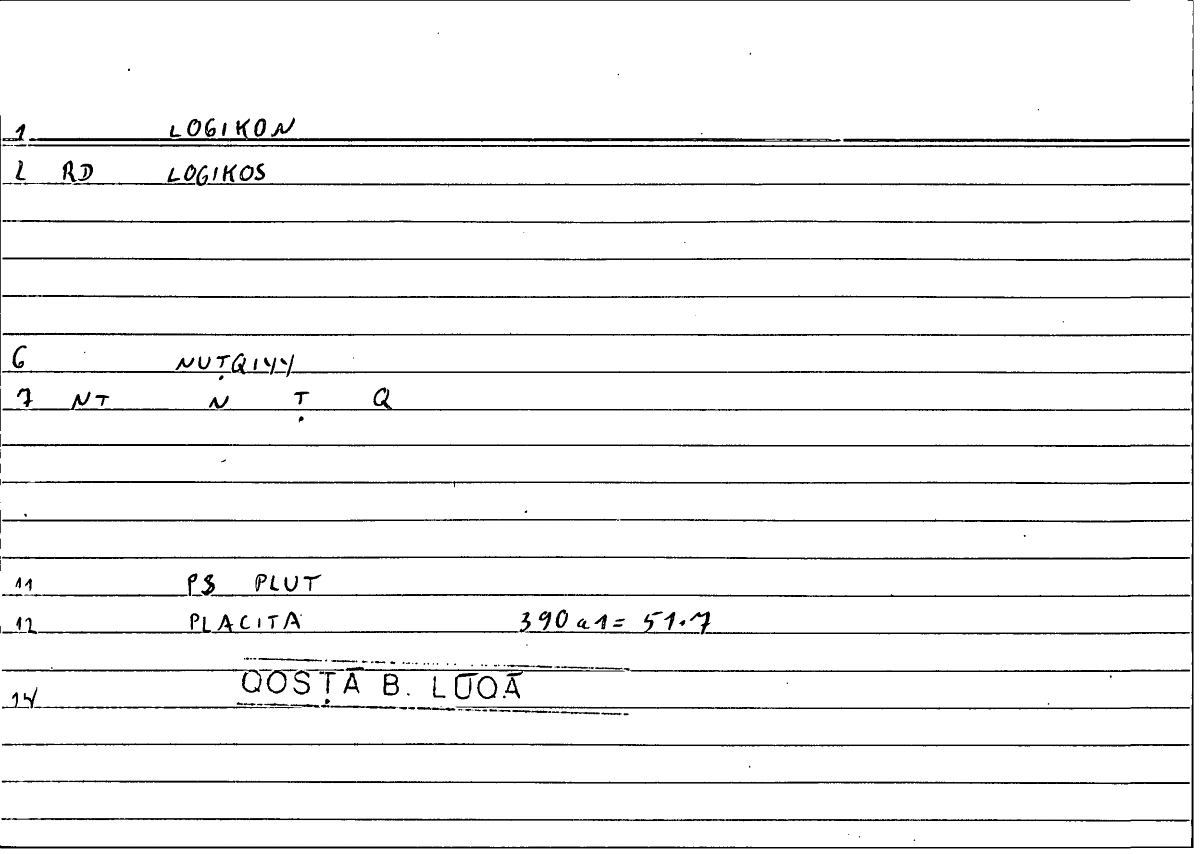 1 LOGIKON
2 RD LOGIKOS
6 NUṬQIYY
7 NT N Ṭ Q
11 PS PLUT
12 PLACITA 390 a 1 = 51.7
14 QOSṬĀ B. LŪQĀ